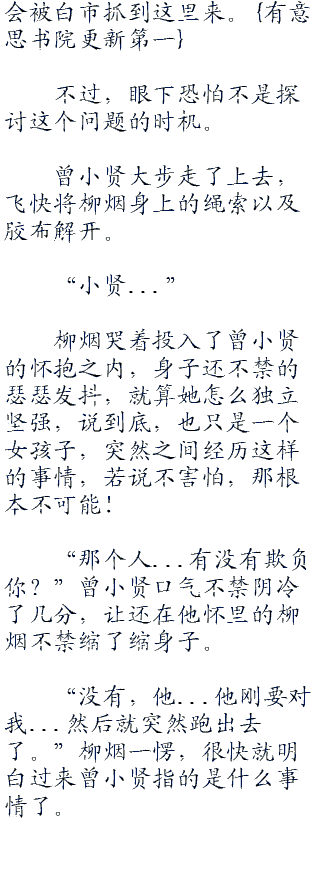 会被白市抓到这里来。{有意
思书院更新第一}
不过，眼下恐怕不是探
讨这个问题的时机。
曾小贤大步走了上去，
飞快将柳烟身上的绳索以及
胶布解开。
“小贤...”
柳烟哭着投入了曾小贤
的怀抱之内，身子还不禁的
瑟瑟发抖，就算她怎么独立
坚强，说到底，也只是一个
女孩子，突然之间经历这样
的事情，若说不害怕，那根
本不可能！
“那个人...有没有欺负
你？”曾小贤口气不禁阴冷
了几分，让还在他怀里的柳
烟不禁缩了缩身子。
“没有，他...他刚要对
我...然后就突然跑出去
了。”柳烟一愣，很快就明
白过来曾小贤指的是什么事
情了。